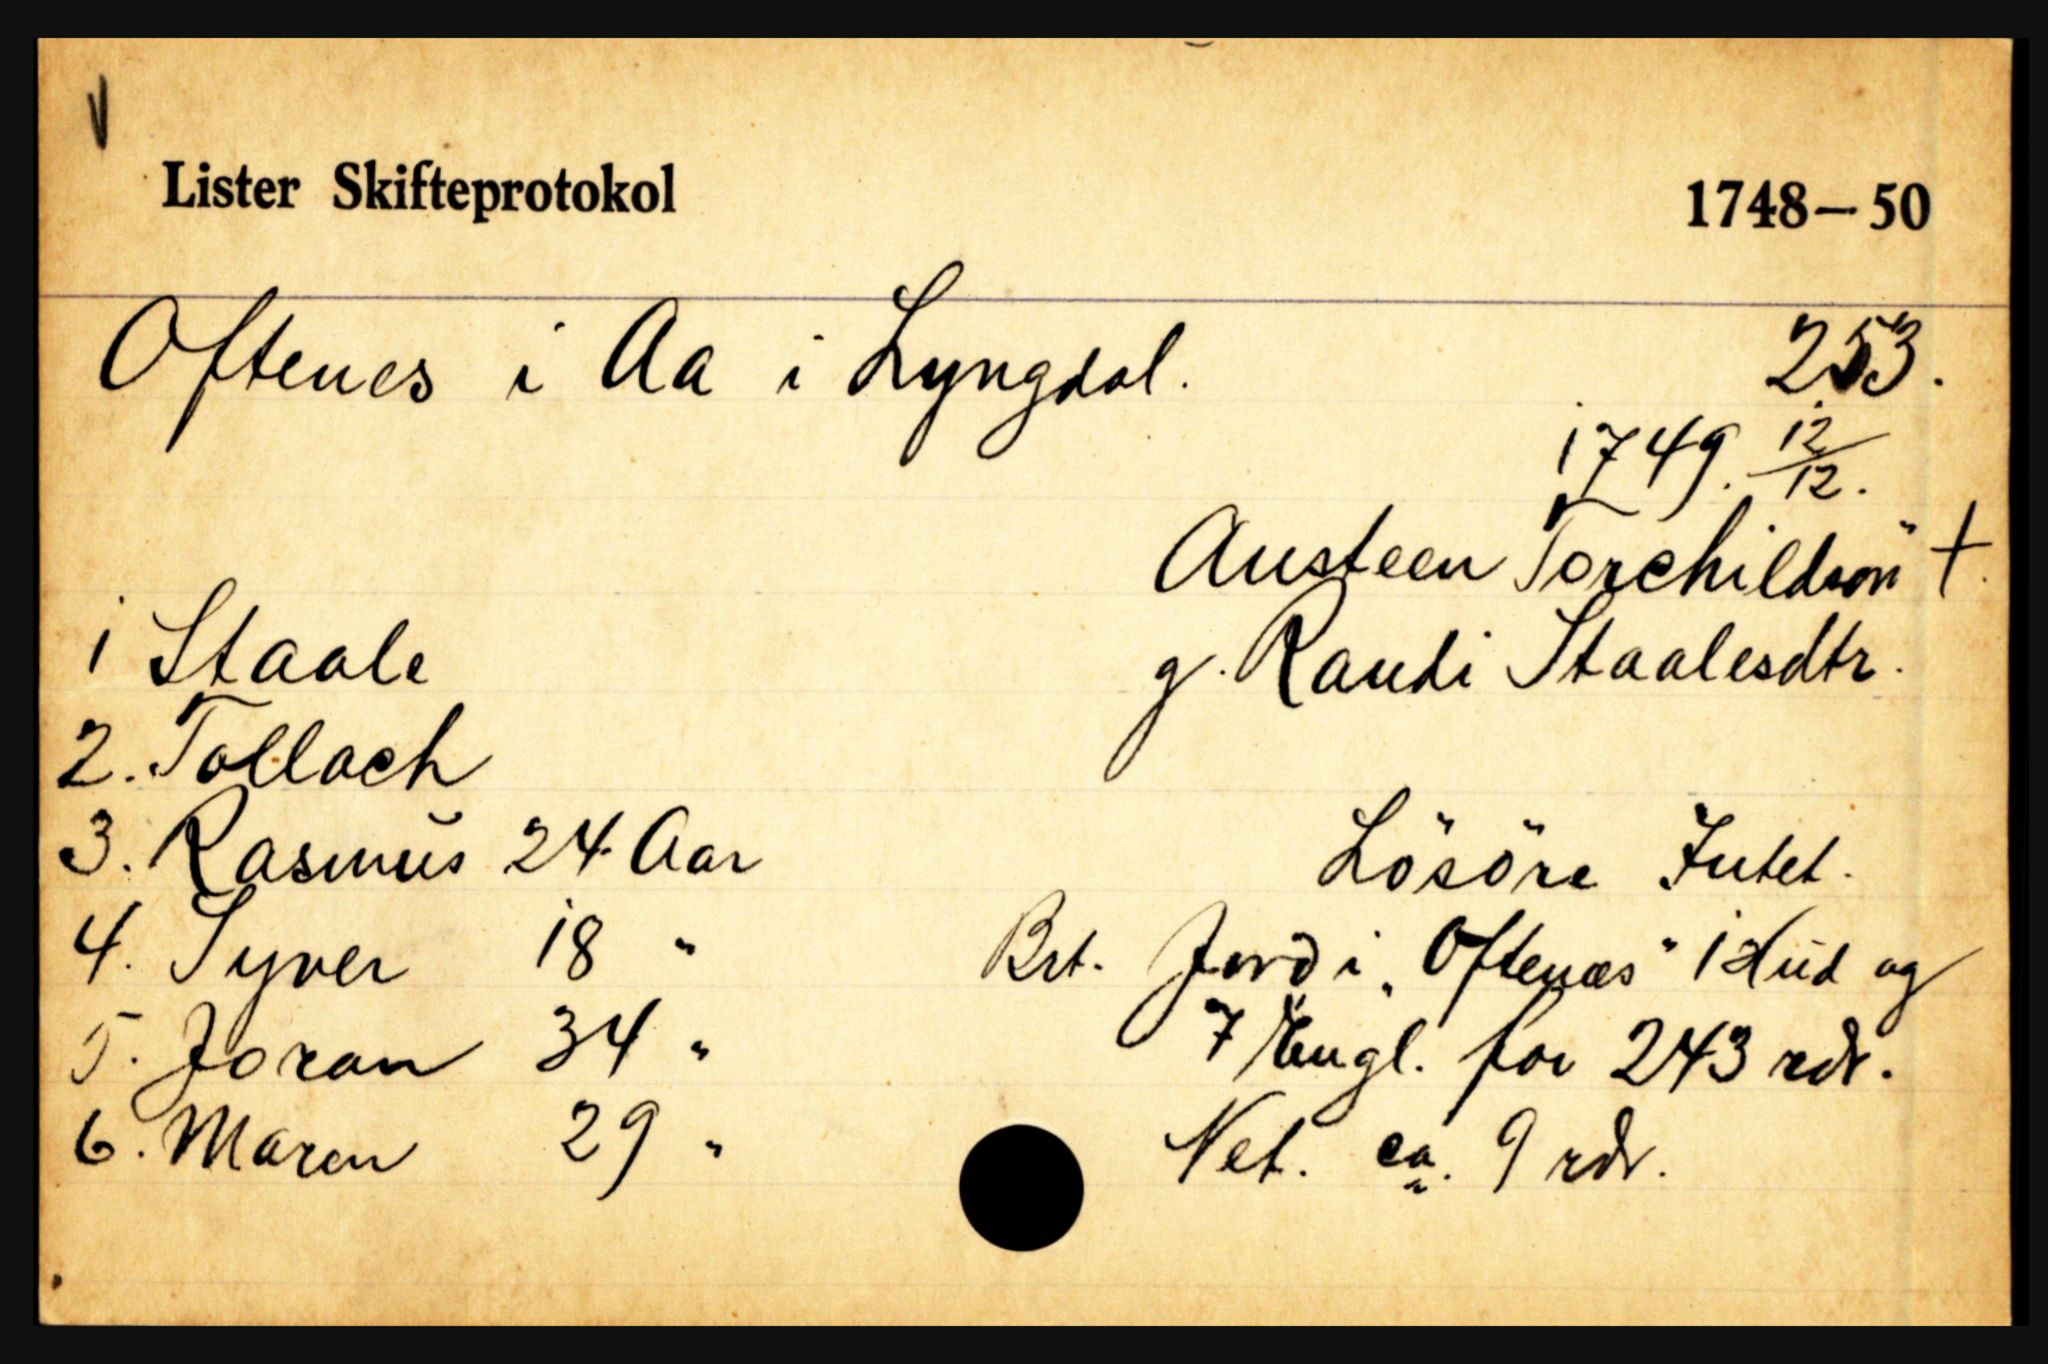 Lister Skifteprotokol 1748-50
Oftenes i Aa i Lyngdal. 253.
1749. 12/12.
Austeen Torchildsøn †.
1 Staale g. Randi Staalesdtr.
2. Tollach
3. Rasmus 24 Aar Lösöre Intet.
4. Syver 18 " Brt. Jord i „Oftenæs" 1 Hud og
5. Joran 34 " 7 Engl. for 243 rdr.
6. Maren 29 " Net. ca. 9 rdr.